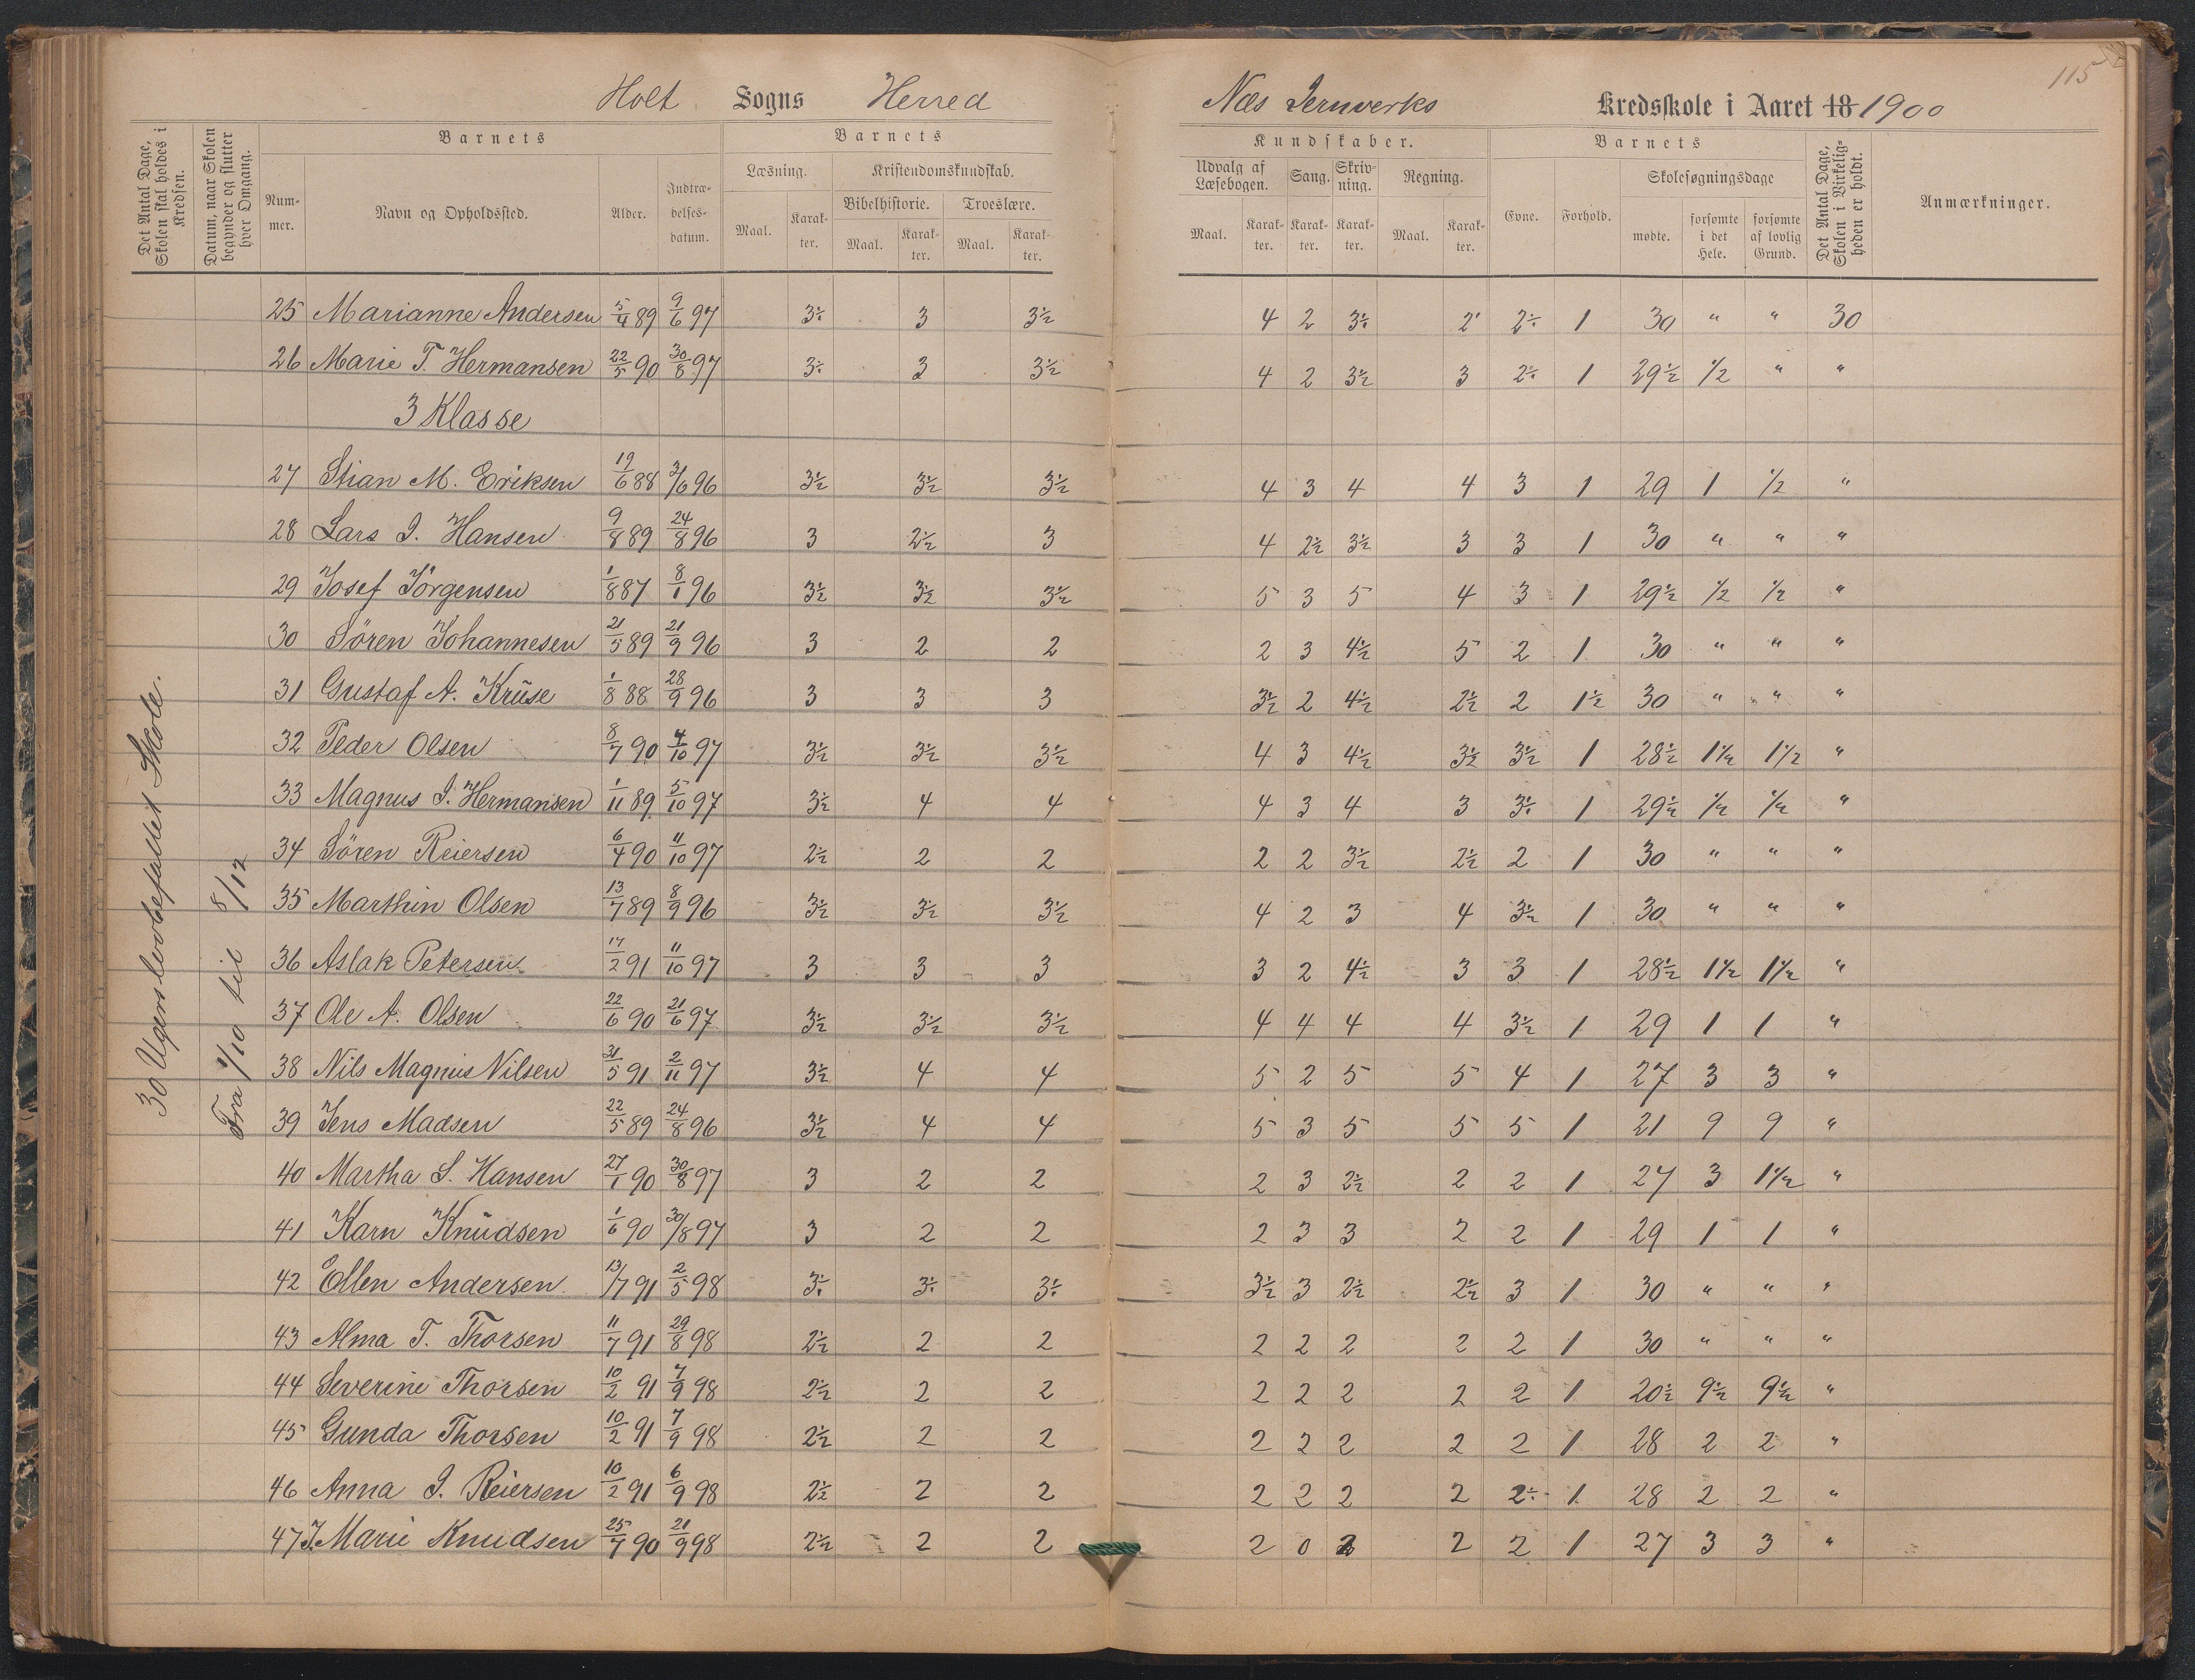 115
Holt Sogns Herred
Næs Jernverks Kredsskole i Aaret 18 1900
Det Antal Dage, Skolen skal holdes i Kredsen.
Datum, naar Skolen begynder og slutter hver Omgang.
Barnets
Nummer.
Navn og Opholdssted.
Alder.
Indtrædelsesdatum.
Barnets
Læsning.
Maal.
Karakter.
Kristendomskundskab.
Bibelhistorie.
Maal.
Karakter.
Troeslære.
Maal.
Karakter.
Kundskaber.
Udvalg af Læsebogen.
Maal.
Karakter.
Sang.
Karakter.
Skrivning.
Karakter.
Regning.
Maal.
Karakter.
Barnets
Evne.
Forhold.
Skolesøgningsdage
mødte.
forsømte i det Hele.
forsømte af lovlig Grund.
Det Antal Dage, Skolen i Virkeligheden er holdt.
Anmærkninger.
30 Ugers lovbefallet Skole.
Fra 1/10 til 8/12
25 Marianne Andersen 5/4 89 9/6 97 3÷ 3 3½ 4 2 3÷ 2' 2÷ 1 30 " " 30
26 Marie T. Hermansen 22/5 90 30/8 97 3÷ 3 3½ 4 2 3½ 3 2÷ 1 29½ ½ " "
3 Klasse
27 Stian M. Eriksen 19/6 88 3/6 96 3½ 3½ 3½ 4 3 4 4 3 1 29 1 ½ "
28 Lars I. Hansen 9/8 89 24/8 96 3 2½ 3 4 2½ 3½ 3 3 1 30 " " "
29 Josef Jörgensen 1/8 87 8/1 96 3½ 3½ 3½ 5 3 5 4 3 1 29½ ½ ½ "
30 Sören Johannesen 21/5 89 21/9 96 3 2 2 2 3 4½ 5 2 1 30 " " "
31 Gustaf A. Kruse 1/8 88 28/9 96 3 3 3 3½ 2 4½ 2½ 2 1½ 30 " " "
32 Peder Olsen 8/7 90 4/10 97 3½ 3½ 3½ 4 3 4½ 3½ 3½ 1 28½ 1½ 1½ "
33 Magnus I. Hermansen 1/11 89 5/10 97 3½ 4 4 4 3 4 3 3÷ 1 29½ ½ ½ "
34 Sören Reiersen 6/4 90 11/10 97 2½ 2 2 2 2 3½ 2½ 2 1 30 " " "
35 Marthin Olsen 13/7 89 8/9 96 3½ 3½ 3½ 4 2 3 4 3½ 1 30 " " "
36 Aslak Petersen 17/2 91 11/10 97 3 3 3 3 2 4½ 3 3 1 28½ 1½ 1½ "
37 Ole A. Olsen 22/6 90 21/6 97 3½ 3½ 3½ 4 4 4 4 3½ 1 29 1 1 "
38 Nils Magnus Nilsen 31/5 91 2/11 97 3½ 4 4 5 2 5 5 4 1 27 3 3 "
39 Jens Madsen 22/5 89 24/8 96 3½ 4 4 5 3 5 5 5 1 21 9 9 "
40 Martha S. Hansen 27/1 90 30/8 97 3 2 2 2 3 2½ 2 2 1 27 3 1½ "
41 Karn Knudsen 1/6 90 30/8 97 3 2 2 2 3 3 2 2 1 29 1 1 "
42 Ellen Andersen 13/7 91 2/5 98 3÷ 3÷ 3÷ 3½ 3 2½ 2½ 3 1 30 " " "
43 Alma T. Thorsen 11/7 91 29/8 98 2½ 2 2 2 2 2 2 2 1 30 " " "
44 Severine Thorsen 10/2 91 7/9 98 2½ 2 2 2 2 2 2 2 1 20½ 9½ 9½ "
45 Gunda Thorsen 10/2 91 7/9 98 2½ 2 2 2 2 2 2 2 1 28 2 2 "
46 Anna I. Reiersen 10/2 91 6/9 98 2½ 2 2 2 2 2 2 2÷ 1 28 2 2 "
47 J. Marie Knudsen 25/7 90 21/9 98 2½ 2 2 2 0 2 2 1 27 3 3 "